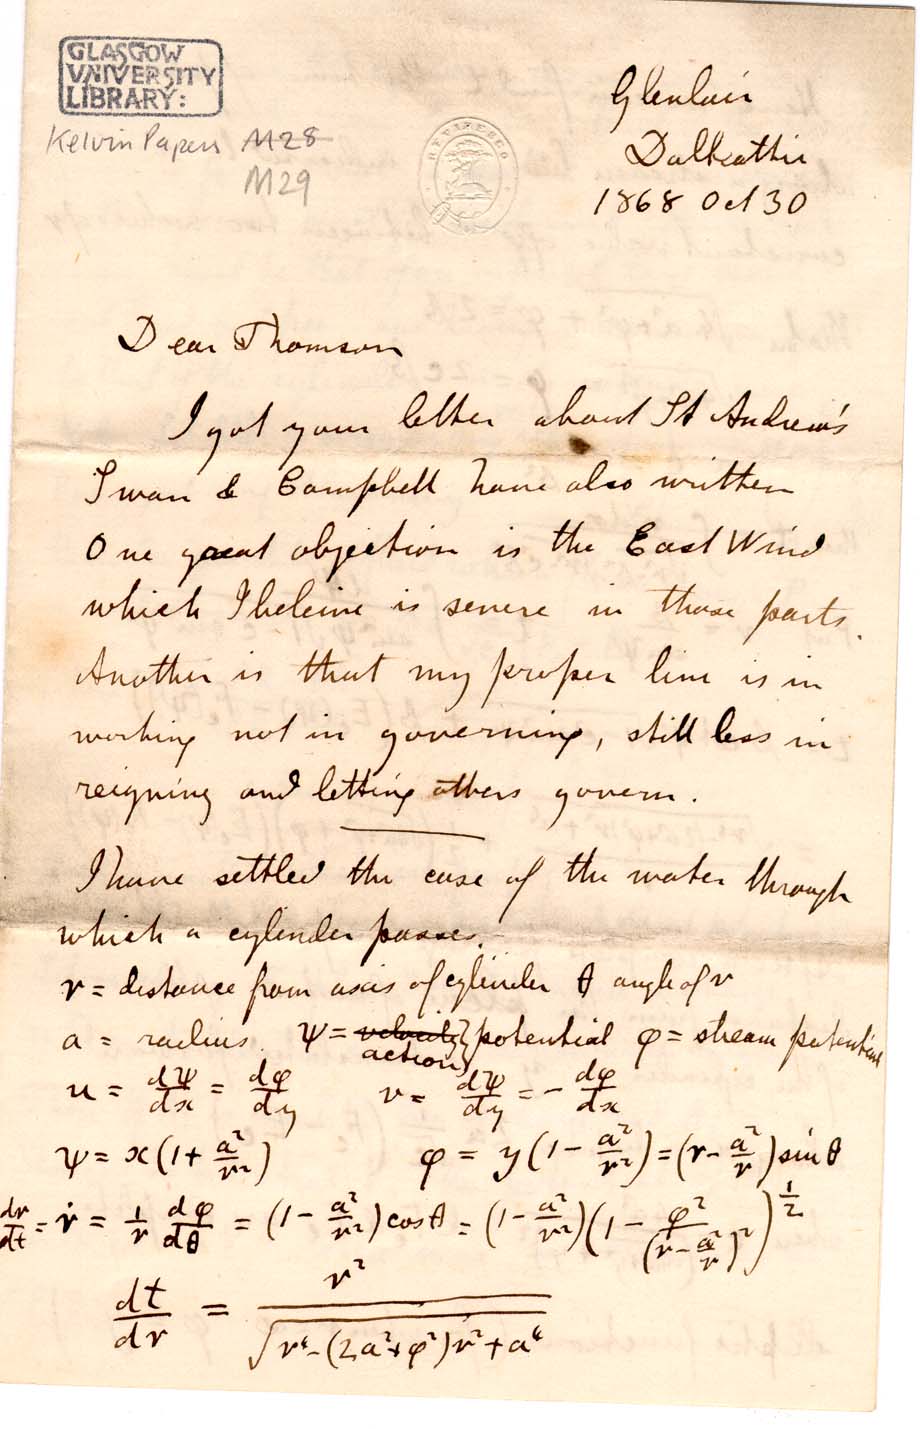 GLASGOW
UNIVERSITY
LIBRARY:
Kelvin Papers M28
M29
REVIRESCO
Glenlair
Dalbeattie
1868 Oct 30
Dear Thomson
I got your letter about St Andrew's
Swan & Campbell have also written
One great objection is the East Wind
which I beleive is severe in those parts.
Another is that my proper line is in
working not in governing, still less in
reigning and letting others govern.
I have settled the case of the water through
which a cylinder passes.
r = distance from axis of cylinder θ angle of r
a = radius. ψ = velocity action } potential φ = stream potential
u = dψ/dx = dφ/dy v = dψ/dy = - dφ/dx
ψ = x(1 + a²/r²) φ = y(1 - a²/r²) = (r - a²/r) sin θ
dr/dt = ṙ = 1/r dφ/dθ = (1 - a²/r²) cos θ = (1 - a²/r²)(1 - φ²/(r - a²/r)²)^1/2
dt/dr = r²/√(r⁴ - (2a² + φ²)r² + a⁴)